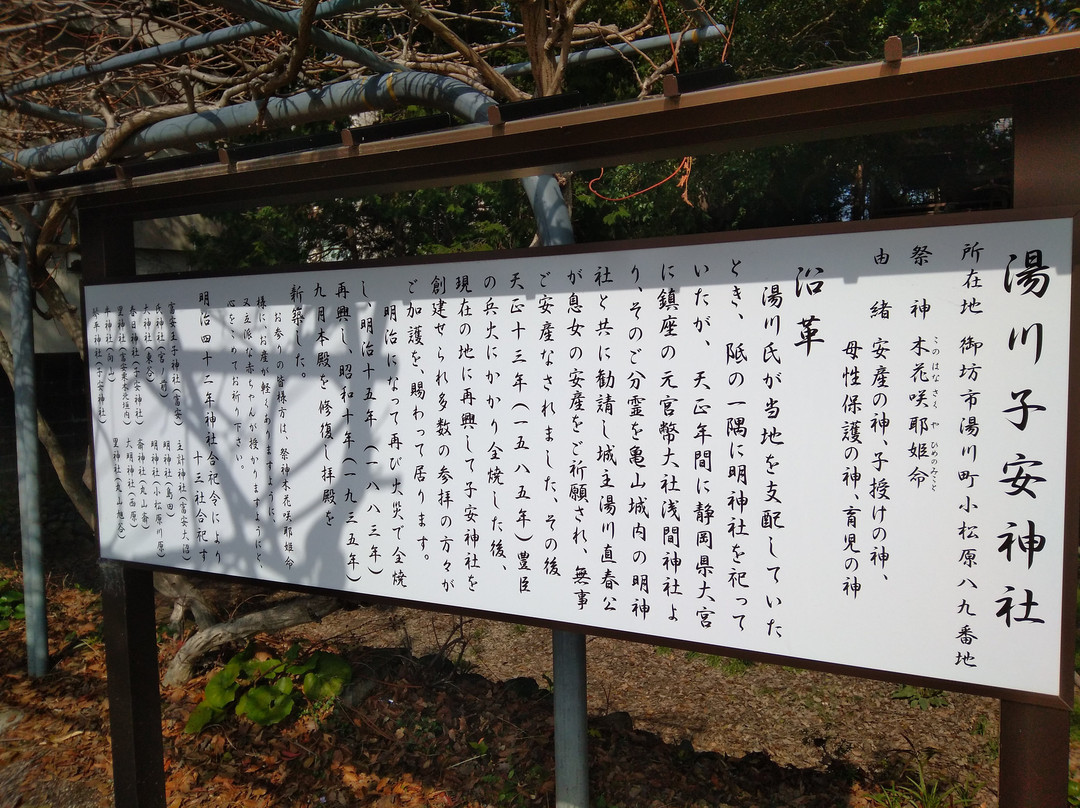 湯川子安神社
所在地 御坊市湯川町小松原八九番地
祭神 木花咲耶姫命
このはなさくやひめのみこと
由緒 安産の神、子授けの神、
母性保護の神、育児の神
沿革
湯川氏が当地を支配していた
とき、阺の一隅に明神社を祀って
いたが、天正年間に静岡県大宮
に鎮座の元官幣大社浅間神社よ
り、そのご分霊を亀山城内の明神
社と共に勧請し城主湯川直春公
が息女の安産をご祈願され、無事
ご安産なされました、その後
天正十三年(一五八五年)豊臣
の兵火にかかり全焼した後、
現在の地に再興して子安神社を
創建せられ多数の参拝の方々が
ご加護を、賜わって居ります。
明治になって再び火災で全焼
し、明治十五年(一八八三年)
再興し、昭和十年(一九三五年)
九月本殿を修復し拝殿を
新築した。
お参りの皆様方は、祭神木花咲耶姫命
様に、お産が軽くありますように、
又立派な赤ちゃんが授かりますようにと、
心をこめてお祈り下さい。
明治四十二年神社合祀令により
十三社合祀す
富安王子神社(富安) 主計神社(富安大沼)
氏神社(宮ノ前) 明神社(島田)
大神社(東谷) 明神社(小松原川原)
春日神社(子安神社) 斎神社(丸山斎)
里神社(富安東本光垣内) 大明神社(西原)
牛神社(角) 里神社(丸山旭谷)
琴平神社(子安神社)